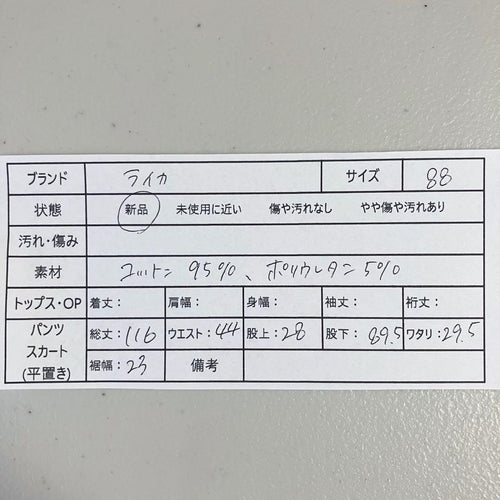 ブランド ライカ サイズ 88
状態 新品 未使用に近い 傷や汚れなし やや傷や汚れあり
汚れ・傷み
素材 コットン 95%、ポリウレタン 5%
トップス・OP 着丈： 肩幅： 身幅： 袖丈： 裄丈：
パンツ スカート (平置き) 総丈：116 ウエスト：44 股上：28 股下：89.5 ワタリ：29.5
裾幅：23 備考